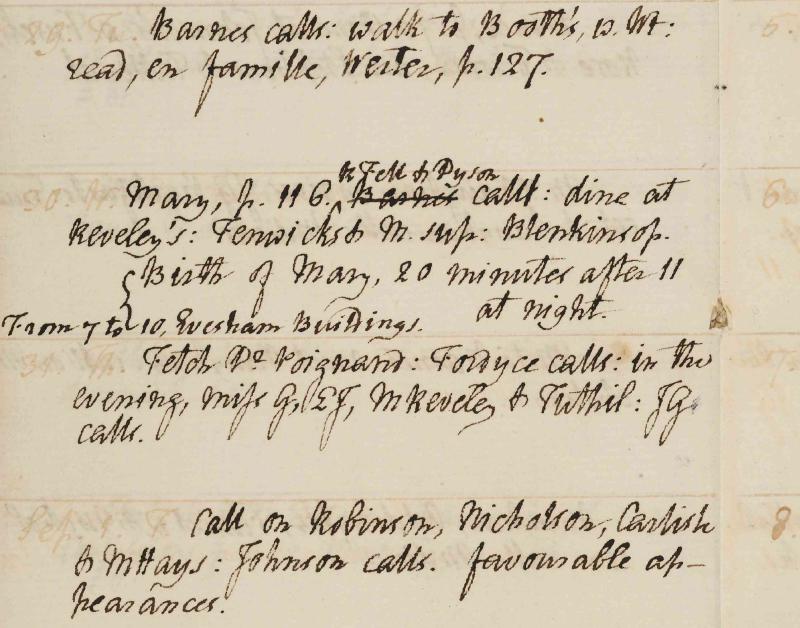 29. Tu. Barnes calls: walk to Booth's, w. Wt: 5.
read, en famille, Werter, p. 127.
R Fell & Dyson
30. W. Mary, p. 116. ^ Barnes call: dine at 6
Reveley's: Fenwicks & M. sup: Blenkinsop.
{ Birth of Mary, 20 minutes after 11
at night.
From 7 to 10, Evesham Buildings.
31. Th. Fetch Dr Poignand: Fordyce calls: in the 7.
evening, miss G, EJ, M Reveley & Tuthil: JG
calls.
Sep. 1. F. Call on Robinson, Nicholson, Carlisle 8.
& MHays: Johnson calls. favourable ap-
pearances.